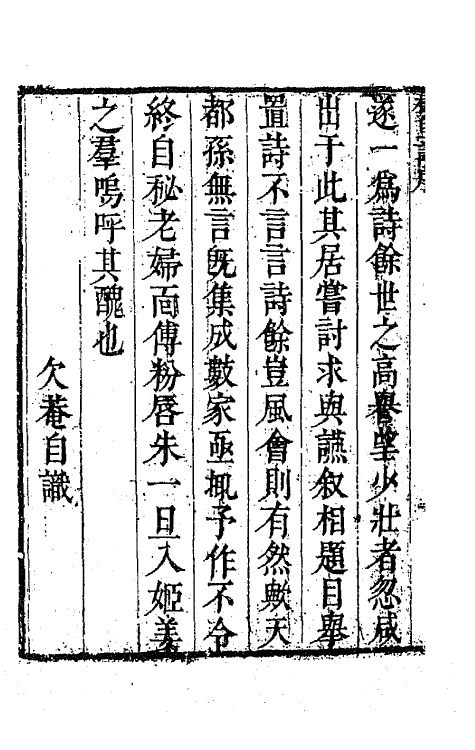 遂一爲詩餘世之高譽望少壯者忽咸
出于此其居嘗討求與讌叙相題目舉
置詩不言言詩餘豈風會則有然歟天
都孫無言旣集成數家亟輒予作不令
終自秘老婦面傅粉唇朱一旦入姬姜
之羣嗚呼其醜也
欠菴自識